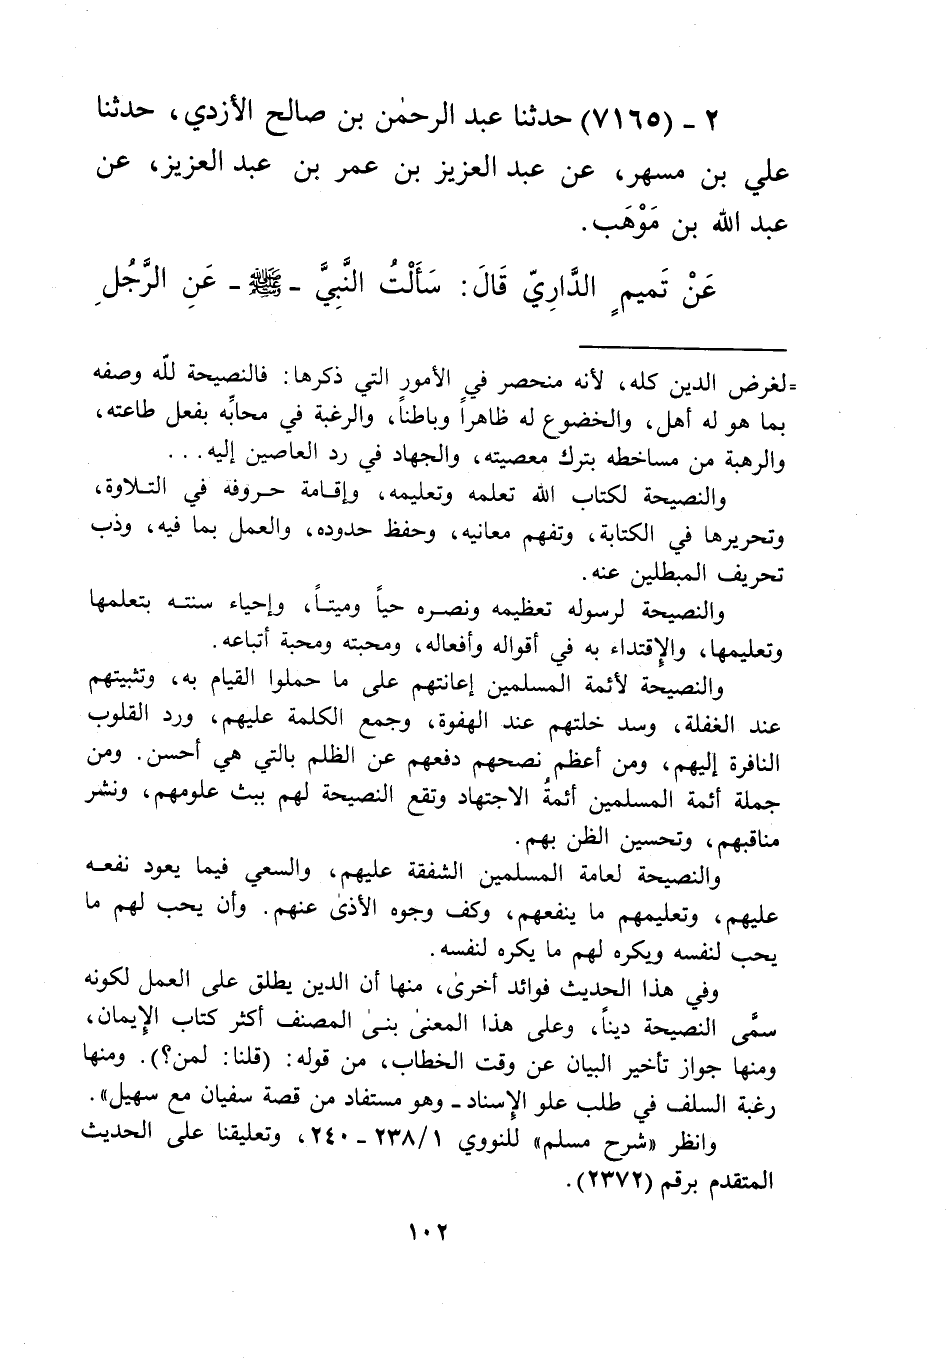 ٢ ـ (٧١٦٥) حدثنا عبد الرحمٰن بن صالح الأزدي، حدثنا
علي بن مسهر، عن عبد العزيز بن عمر بن عبد العزيز، عن
عبد الله بن مَوْهَب.
عَنْ تَميمٍ الدَّارِيّ قَالَ: سَأَلْتُ النَّبِيَّ ـ ﷺ ـ عَنِ الرَّجُلِ
=لغرض الدين كله، لأنه منحصر في الأمور التي ذكرها: فالنصيحة للّه وصفه
بما هو له أهل، والخضوع له ظاهراً وباطناً، والرغبة في محابِّه بفعل طاعته،
والرهبة من مساخطه بترك معصيته، والجهاد في رد العاصين إليه...
والنصيحة لكتاب الله تعلمه وتعليمه، وإقامة حروفه في التلاوة،
وتحريرها في الكتابة، وتفهم معانيه، وحفظ حدوده، والعمل بما فيه، وذب
تحريف المبطلين عنه.
والنصيحة لرسوله تعظيمه ونصره حياً وميتاً، وإحياء سنته بتعلمها
وتعليمها، والإقتداء به في أقواله وأفعاله، ومحبته ومحبة أتباعه.
والنصيحة لأئمة المسلمين إعانتهم على ما حملوا القيام به، وتثبيتهم
عند الغفلة، وسد خلتهم عند الهفوة، وجمع الكلمة عليهم، ورد القلوب
النافرة إليهم، ومن أعظم نصحهم دفعهم عن الظلم بالتي هي أحسن. ومن
جملة أئمة المسلمين أئمةُ الاجتهاد وتقع النصيحة لهم ببث علومهم، ونشر
مناقبهم، وتحسين الظن بهم.
والنصيحة لعامة المسلمين الشفقة عليهم، والسعي فيما يعود نفعه
عليهم، وتعليمهم ما ينفعهم، وكف وجوه الأذىٰ عنهم. وأن يحب لهم ما
يحب لنفسه ويكره لهم ما يكره لنفسه.
وفي هذا الحديث فوائد أخرىٰ، منها أن الدين يطلق على العمل لكونه
سمَّى النصيحة ديناً، وعلى هذا المعنىٰ بنىٰ المصنف أكثر كتاب الإيمان،
ومنها جواز تأخير البيان عن وقت الخطاب، من قوله: (قلنا: لمن؟). ومنها
رغبة السلف في طلب علو الإسناد ـ وهو مستفاد من قصة سفيان مع سهيل».
وانظر «شرح مسلم» للنووي ٢٣٨/١ ـ ٢٤٠، وتعليقنا على الحديث
المتقدم برقم (٢٣٧٢).
١٠٢